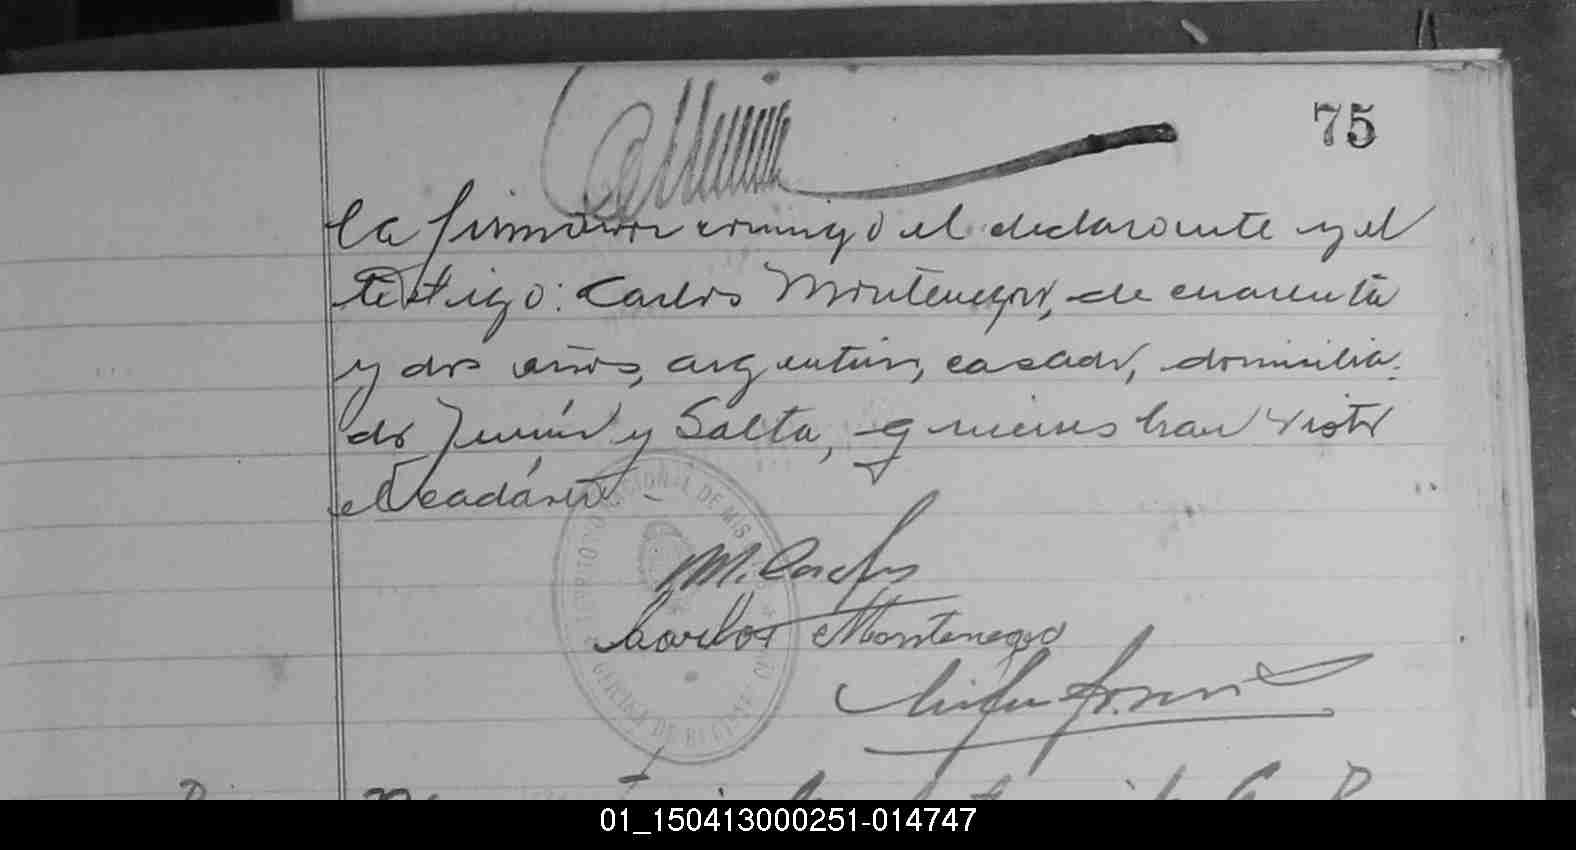 75
la firmaron conmigo el declarante y el
testigo: Carlos Montenegro, de cuarenta
y dos años, argentino, casado, domicilia-
do Junín y Salta, quienes han visto
el cadáver. -
TERRITORIO NACIONAL DE MIS
M.
Carlos Montenegro
01_150413000251-014747